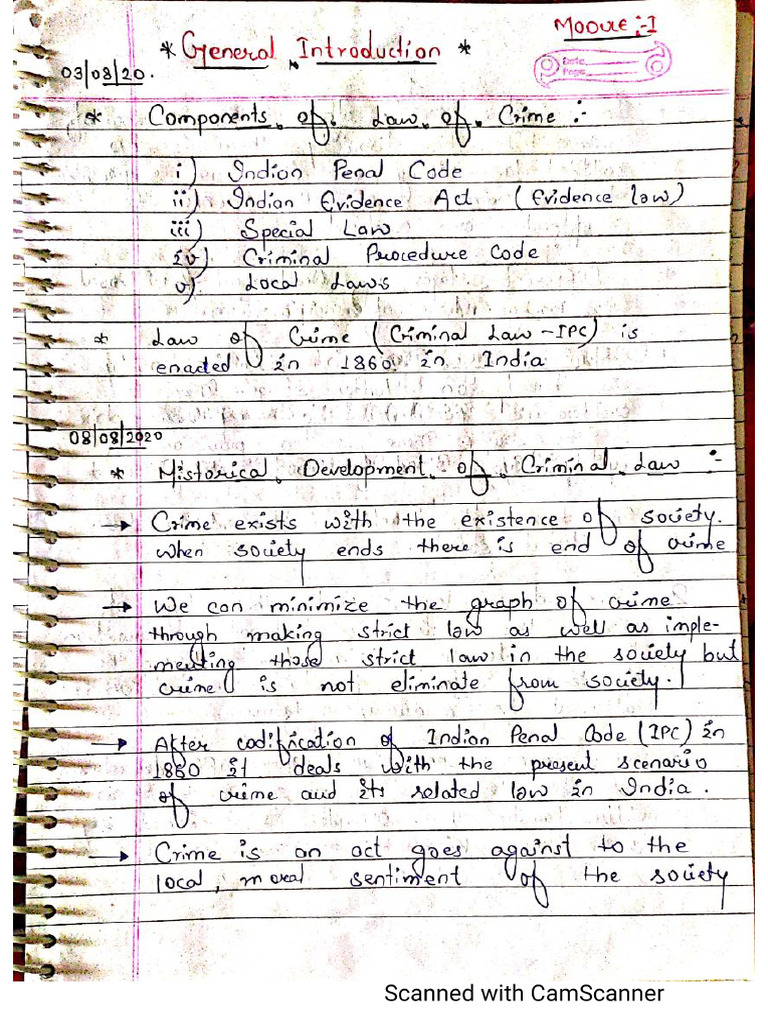 Module :- I
* General Introduction *
03/08/20.
Date
Page
* Components of Law of Crime :-
i) Indian Penal Code
ii) Indian Evidence Act (Evidence law)
iii) Special Law
iv) Criminal Procedure Code
v) Local Laws
* Law of Crime (Criminal Law - IPC) is
enacted in 1860 in India
08/08/2020
* Historical Development of Criminal Law :-
→ Crime exists with the existence of society.
when society ends there is end of crime
→ We can minimize the graph of crime
through making strict law as well as imple-
menting those strict law in the society but
crime is not eliminate from society.
→ After codification of Indian Penal Code (IPC) in
1860 it deals with the present scenario
of crime and its related law in India.
→ Crime is an act goes against to the
local, moral sentiment of the society
Scanned with CamScanner